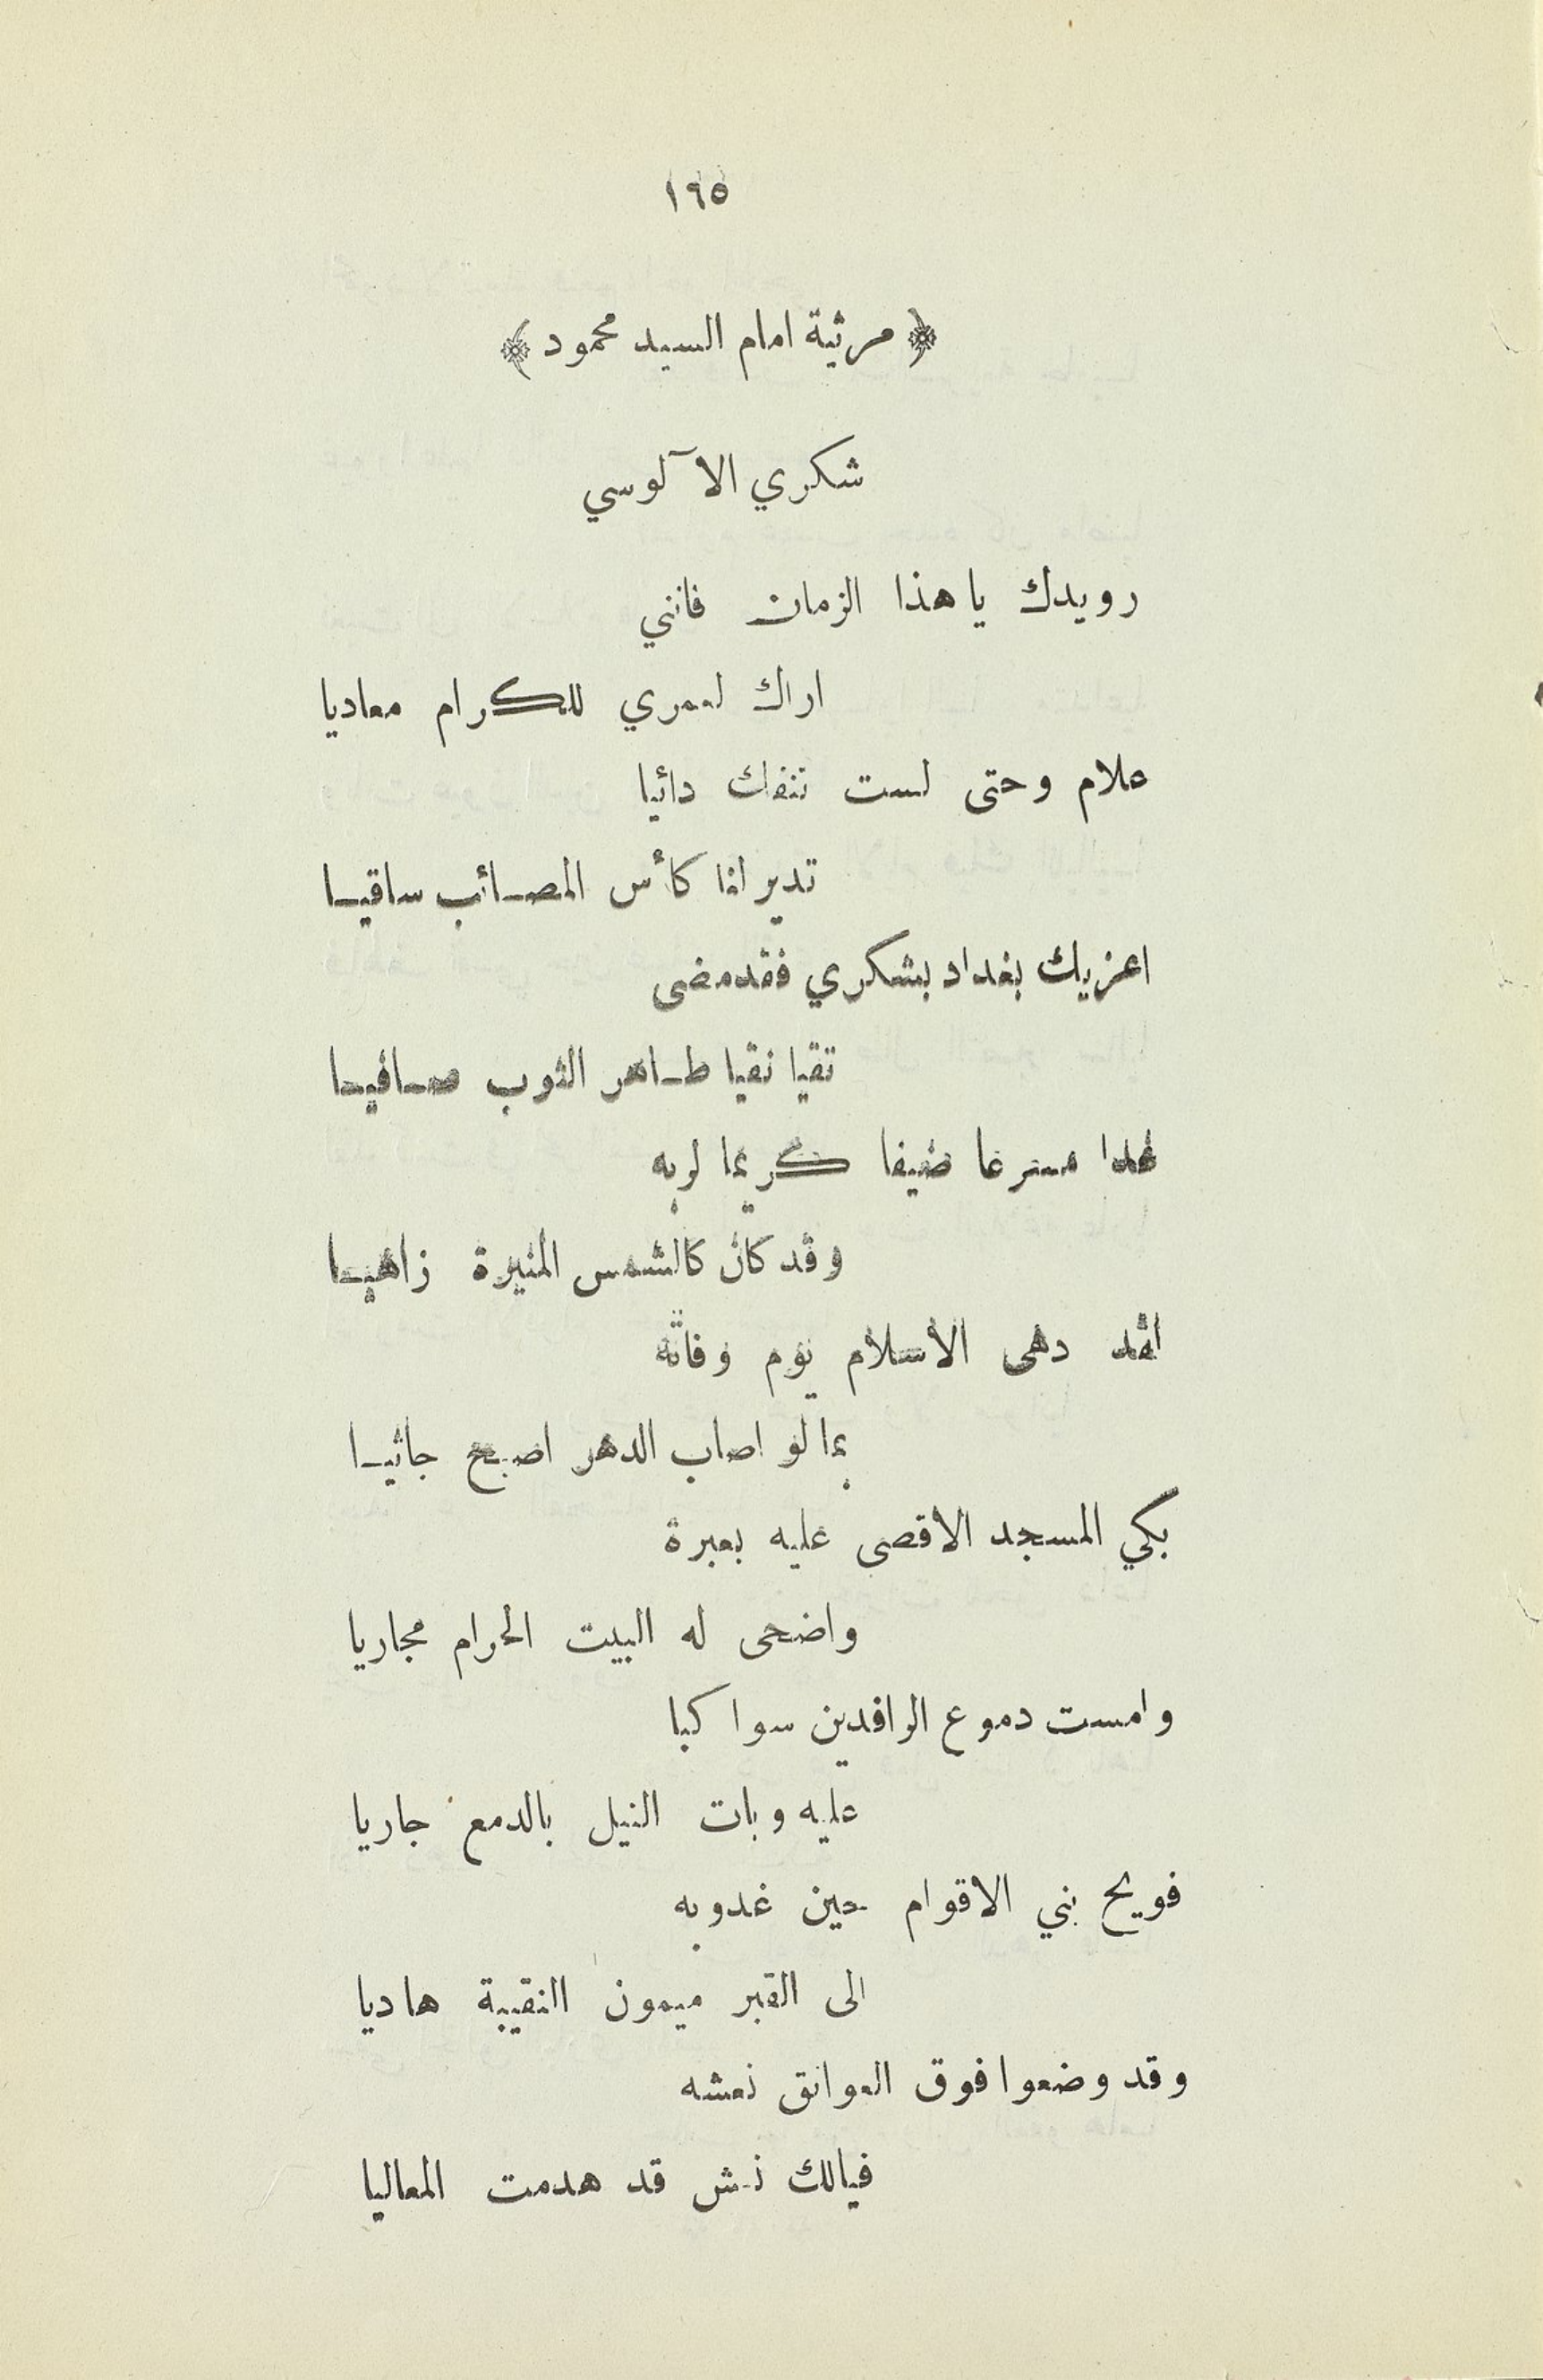 ١٦٥
﴿ مرثية امام السيد محمود ﴾
شكري الآلوسي
رويدك يا هذا الزمان فانني
اراك لعمري للكرام معاديا
علام وحتى لست تنفك دائبا
تدير لنا كأس المصائب ساقيا
اعزيك بغداد بشكري فقد مضى
تقيا نقيا طاهر الثوب صافيا
غدا مسرعا ضيفا كريما لربه
وقد كان كالشمس المنيرة زاهيا
لقد دهى الاسلام يوم وفاته
بما لو اصاب الدهر اصبح جاثيا
بكي المسجد الاقصى عليه بعبرة
واضحى له البيت الحرام مجاريا
وامست دموع الرافدين سواكبا
عليه وبات النيل بالدمع جاريا
فويح بني الاقوام حين غدو به
الى القبر ميمون النقيبة هاديا
وقد وضعوا فوق العواتق نعشه
فيالك نعش قد هدمت المعاليا